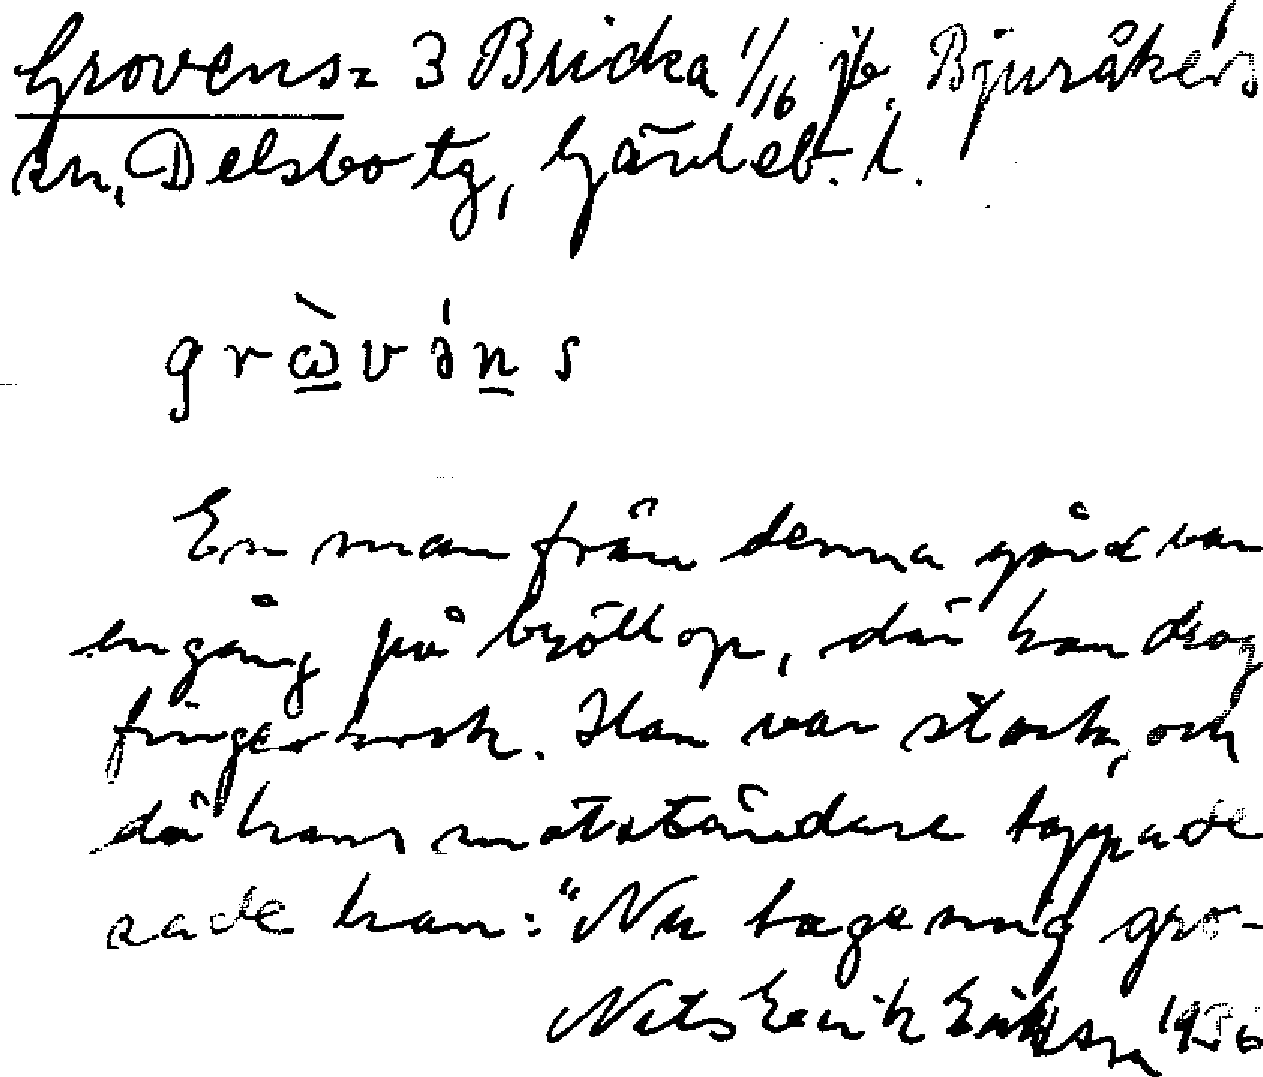 Grovens= 3 Bricka 1/16 jb. Bjuråkers
sn, Delsbo tg, Gävleb. l.
grὼvə́ns
En man från denna gård var
en gång på bröllop, där han drog
fingerkrok. Han var stark, och
då hans motståndare tappade
sade han: "Nu tage mig gro-
Nils Erik Eriksson 1936